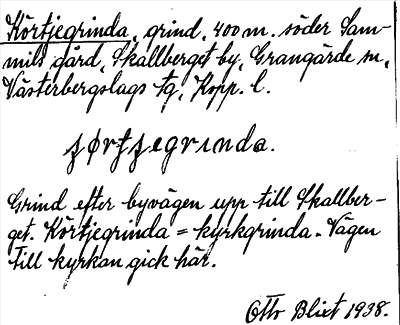 Körtjegrinda, grind, 400 m. söder Sam-
mils gård, Skallberget by, Grangärde sn,
Västerbergslags tg, Kopp. l.
jørtjegrında.
Grind efter byvägen upp till Skallber-
get. Körtjegrinda = kyrkgrinda. Vägen
till kyrkan gick här.
Otto Blixt 1938.